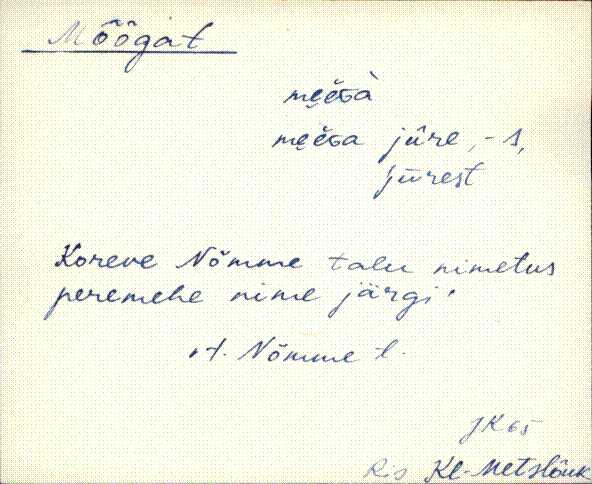 Mõõgat
jüre, -s,
jürest
Koreve Nõmme talu nimetus
peremehe nime järgi.
vt. Nõmme t.
JK 65
Ris Kl-Metslõuk